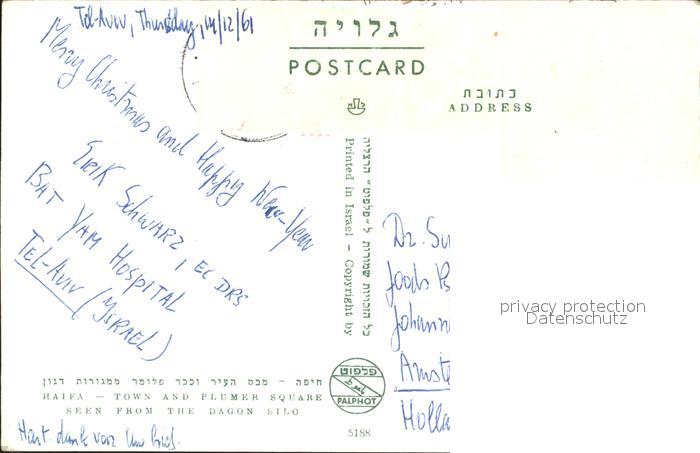 Tel-Aviv, Thursday, 14/12/61
Merry Christmas and Happy New-Year
Erik Schwarz, EC DRS
BAT YAM HOSPITAL
TEL-AVIV (ISRAEL)
גלויה
POSTCARD
כתובת
ADDRESS
כל הזכויות שמורות ל״פלפוט״ הרצליה
Printed in Israel – Copyright by
פלפוט
PALPHOT
Dr. Su
Joods
Johann
Amste
Holla
privacy protection
Datenschutz
חיפה – מבט העיר וככר פלומר ממגורות דגון
HAIFA – TOWN AND PLUMER SQUARE
SEEN FROM THE DAGON SILO
5188
Hart. dank voor Uw brief.